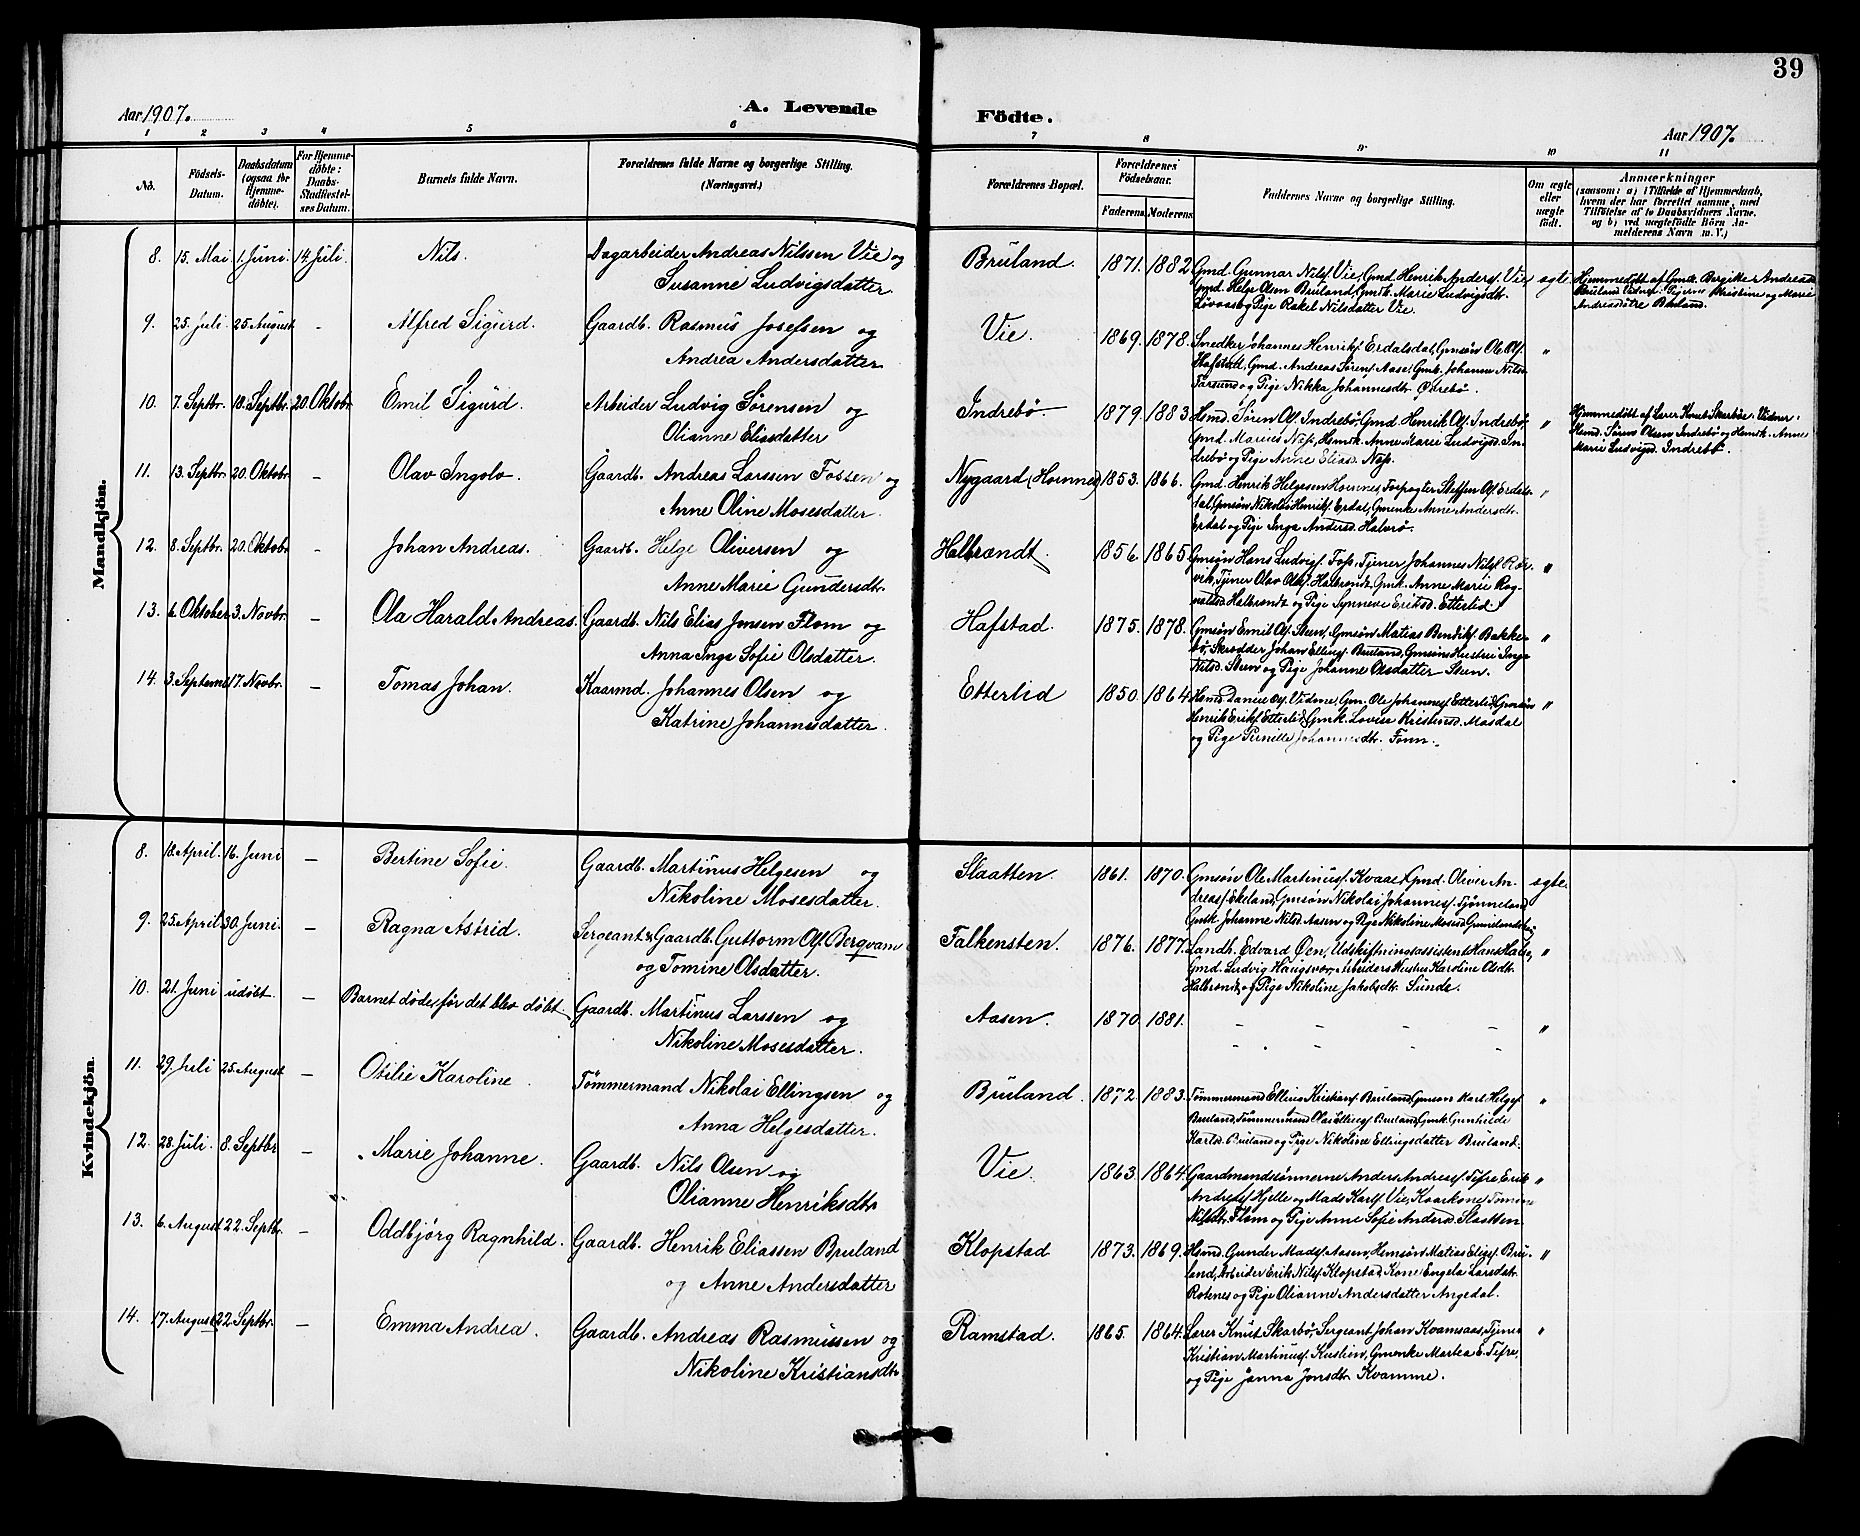 39
Aar 1907.
A. Levende
Fødte.
Aar 1907.
1 2 3 4 5 6 7 8 9 10 11
No.
Fødsels-
Datum.
Daabsdatum
(ogsaa for
Hjemme-
døbte).
For Hjemme-
døbte:
Daabs-
Stadfæstel-
ses Datum.
Barnets fulde Navn.
Forældrenes fulde Navne og borgerlige Stilling.
(Næringsvei.)
Forældrenes Bopæl.
Forældrenes
Fødselsaar.
Faderens. Moderens.
Faddernes Navne og borgerlige Stilling.
Om ægte
eller
uægte
født.
Anmærkninger
(saasom: a) i Tilfælde af Hjemmedaab,
hvem der har forrettet samme, med
Tilføielse af to Daabsvidners Navne.
og b) ved uægtefødte Børn An-
melderens Navn m. V.)
Mandkjön.
8. 15. Mai 1. Juni. 14 Juli. Nils. Dagarbeider Andreas Nilssen Vie og
Susanne Ludvigsdatter.
Bruland. 1871. 1882 Gmd. Gunnar Nilsf. Vie, Gmd. Henrik Andersf. Vie
Gmd. Helge Olsen Bruland, Gmk. Marie Ludvigsdt.
Løvaas og Pige Rakel Nilsdatter Vie.
ægte Hjemmedøbt af Gmk. Bergitte Andreasd.
Bruland. Vidnesf. Pigerne Kristine og Marie
Andreasdøtre Bruland.
9. 25. Juli 25. August - Alfred Sigurd. Gaardb. Rasmus Josefsen og
Andrea Andersdatter
Vie. 1869. 1878. Snedker Johannes Henriksf. Erdalsdal, Gmsøn Ole Olsf.
Hafstad, Gmd. Andreas Sørensf. Aase, Gmk. Johanne Nilsd.
Farsund og Pige Nikka Johannesdt. Øvrebø. "
10. 7. Septbr. 18. Septbr. 20. Oktobr Emil Sigurd. Arbeider Ludvig Sørensen og
Olianne Eliasdatter
Indrebø. 1879 1883 Hsmd. Søren Olsf. Indrebø, Gmd. Henrik Olsf. Indrebø,
Gmd. Marius Næss, Hsmk. Anne Marie Ludvigsd. In-
drebø og Pige Anne Eliasd. Næss.
" Hjemmedøbt af Lærer Knut Skarbø. Vidner:
Hsmd. Søren Olsen Indrebø og Hsmk. Anne
Marie Ludvigsd. Indrebø.
11. 13. Septbr. 20. Oktobr. - Olav Ingolv. Gaardb. Andreas Larssen Fossen og
Anne Oline Mosesdatter.
Nygaard (Hornnes) 1853. 1866. Gmd. Henrik Helgesen Hornnes, Forpagter Steffen Olsf. Erdals-
dal, Gmsøn Nikolai Henriksf. Erdal, Gmenke Anne Andersdt.
Erdal og Pige Inga Andersd. Halvrø. "
12. 8. Septbr. 20. Oktobr - Johan Andreas. Gaardb. Helge Oliversen og
Anne Marie Gundersdtr.
Halbrændt. 1856. 1865. Gmsøn Hans Ludvigsf. Foss, Tjener Johannes Nilsf. Rør-
vik, Tjener Olav Olsf. Halbrændt, Gmk. Anne Marie Rag-
naldsd. Halbrændt og Pige Synneve Eriksd. Etterlid. "
13. 6. Oktober 3. Novbr. - Ola Harald Andreas. Gaardb. Nils Elias Jensen Flom og
Anna Inga Sofie Olsdatter.
Hafstad. 1875. 1878. Gmsøn Emil Olsf. Steen, Gmsøn Matias Bendiksf. Bakke-
bø, Skrædder Johan Ellingsf. Bruland, Gmsøns Hustru Inga
Nilsd. Steen og Pige Johanne Olsdatter Steen. "
14. 3. Septembr 17. Novbr. - Tomas Johan. Kaarmd. Johannes Olsen og
Katrine Johannesdatter.
Etterlid 1850. 1864. Hsmd. Daniel Olsf. Vidme, Gm. Ole Johannesf. Etterlid, Gmsøn
Henrik Eriksf. Etterlid, Gmk. Lovise Kristensd. Masdal
og Pige Pernille Johannesdt. Fonn. "
Kvindekjön.
8. 18. April. 16. Juni - Bertine Sofie. Gaardb. Martinus Helgesen og
Nikoline Mosesdatter.
Slaatten. 1861. 1870. Gmsøn Ole Martinusf. Kvaal, Gmd. Oliver An-
dreasf. Ekeland, Gmsøn Nikolai Johannesf. Tjønneland,
Gmk. Johanne Nilsd. Aasen og Pige Nikoline Mosesd.
ægte.
9. 25. April 30. Juni. - Ragna Astrid. Sergeant & Gaardb. Guttorm Olsf. Bergvam
og Tomine Olsdatter.
Falkensten. 1876. 1877. Landh. Edvard Øen, Udskiftningsassistent Hans
Gmd. Ludvig Haugsvær, Arbeiders Hustru Karoline Olsdt.
Halbrændt, og Pige Nikoline Jakobsdt. Sunde. "
10. 21. Juni udøbt. - Barnet døde, før det blev døbt. Gaardb. Martinus Larssen og
Nikoline Mosesdatter.
Aasen. 1870. 1881. - - - - "
- - - -
11. 29. Juli 25. August - Otilie Karoline. Tømmermand Nikolai Ellingsen og
Anna Helgesdatter.
Bruland. 1872. 1883. Tømmermand Elling Kristiansf. Bruland, Gmsøn Karl Helgesf.
Bruland, Tømmermand Olai Ellingsf. Bruland, Gmk. Gunhilde
Karlsd. Bruland og Pige Nikoline Ellingsdatter Bruland. "
12. 28. Juli. 8. Septbr - Marie Johanne. Gaardb. Nils Olsen og
Olianne Henriksdtr
Vie. 1863. 1864. Gaardmandssønnerne Anders Andreasf. Tefre, Erik
Andreasf. Hjelle og Mads Karlsf. Vie, Kaarkone
Nilsdt. Flom og Pige Anne Sofie Andersd. Slaatten. "
13. 6. August 22. Septbr. - Oddbjørg Ragnhild. Gaardb. Henrik Eliassen Bruland
og Anne Andersdatter
Klopstad 1873. 1869. Hsmd. Gunder Madsf. Aasen, Hsmsøn Matias Eliasf. Bru-
land, Arbeider Erik Nilsf. Klopstad, Kone Engela Larsdt.
Rotenes og Pige Olianne Andersdatter Angedal. "
14. 17. August 22. Septbr. - Emma Andrea. Gaardb. Andreas Rasmussen og
Nikoline Kristiansdtr
Ramstad. 1865. 1864. Lærer Knut Skarbø, Sergeant Johan Kvamsaas, Tjener
Kristian Martinusf. Kusliein, Gmenke Martea E. Tefre,
og Pige Janna Jonsdt. Kvamme. "